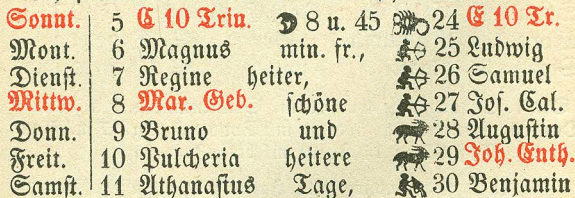 Sonnt. 5 C 10 Trin. 8 u. 45 24 E 10 Tr.
Mont. 6 Magnus min. fr., 25 Ludwig
Dienst. 7 Regine heiter, 26 Samuel
Mittw. 8 Mar. Geb. schöne 27 Jos. Cal.
Donn. 9 Bruno und 28 Augustin
Freit. 10 Pulcheria heitere 29 Joh. Enth.
Samst. 11 Athanasius Tage, 30 Benjamin